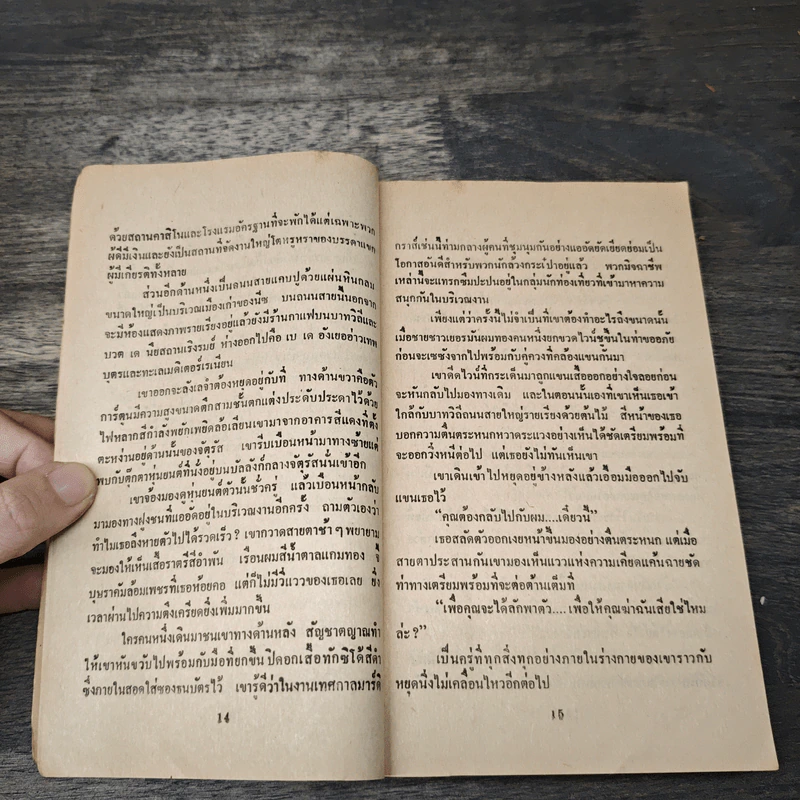 ด้วยสถานคาสิโนและโรงแรมอัครฐานที่จะพักได้แต่เฉพาะพวก
ผู้ดีมีเงินและยังเป็นสถานที่จัดงานใหญ่โตหรูหราของบรรดาแขก
ผู้มีเกียรติทั้งหลาย
ส่วนอีกด้านหนึ่งเป็นถนนสายแคบปูด้วยแผ่นหินกลม
ขนาดใหญ่เป็นบริเวณเมืองเก่าของนีซ บนถนนสายนี้นอกจาก
จะมีห้องแสดงภาพรายเรียงอยู่แล้วยังมีร้านกาแฟบนบาทวิถีและ
บวต เด นีสถานเริงรมย์ ห่างออกไปคือ เบ เด อังเยออ่าวเทพ
บุตรและทะเลเมดิเตอร์เรเนียน
เขาออกจะลังเลจำต้องหยุดอยู่กับที่ ทางด้านขวาคือตัว
การ์ตูนมีความสูงขนาดตึกสามชั้นตกแต่งประดับประดาไว้ด้วย
ไฟหลากสีกำลังพยักเพยิดล้อเลียนเขามาจากอาคารสีแดงที่ตั้ง
ตะหง่านอยู่ด้านนั้นของจัตุรัส เขารีบเบือนหน้ามาทางซ้ายแต่
พบกับตุ๊กตาหุ่นยนต์ที่นั่งอยู่บนบัลลังก์กลางจัตุรัสนั่นเข้าอีก
เขาจ้องมองดูหุ่นยนต์ตัวนั้นชั่วครู่ แล้วเบือนหน้ากลับ
มามองทางฝูงชนที่แออัดอยู่ในบริเวณงานอีกครั้ง ถามตัวเองว่า
ทำไมเธอถึงหายตัวไปได้รวดเร็ว? เขากวาดสายตาช้า ๆ พยายาม
จะมองให้เห็นเสื้อราตรีสีอำพัน เรือนผมสีน้ำตาลแกมทอง จี้
บุษราคัมล้อมเพชรที่เธอห้อยคอ แต่ก็ไม่มีวี่แววของเธอเลย ยิ่ง
เวลาผ่านไปความตึงเครียดยิ่งเพิ่มมากขึ้น
ใครคนหนึ่งเดินมาชนเขาทางด้านหลัง สัญชาตญาณทำ
ให้เขาหันขวับไปพร้อมกับมือที่ยกขึ้น ปิดอกเสื้อทักซิโด้สีดำ
ซึ่งภายในสอดใส่ซองธนบัตรไว้ เขารู้ดีว่าในงานเทศกาลมาร์ดิ
14
กราส์เช่นนี้ท่ามกลางผู้คนที่ชุมนุมกันอย่างแออัดยัดเยียดย่อมเป็น
โอกาสอันดีสำหรับพวกนักล้วงกระเป๋าอยู่แล้ว พวกมิจฉาชีพ
เหล่านี้จะแทรกซึมปะปนอยู่ในกลุ่มนักท่องเที่ยวที่เข้ามาหาความ
สนุกกันในบริเวณงาน
เพียงแต่ว่าครั้งนี้ไม่จำเป็นที่เขาต้องทำอะไรถึงขนาดนั้น
เมื่อชายชาวเยอรมันผมทองคนหนึ่งยกขวดไวน์ชูขึ้นในท่าขออภัย
ก่อนจะเซซังจากไปพร้อมกับคู่ควงที่คล้องแขนกันมา
เขาดีดไวน์ที่กระเด็นมาถูกแขนเสื้อออกอย่างใจลอยก่อน
จะหันกลับไปมองทางเดิม และในตอนนั้นเองที่เขาเห็นเธอเข้า
ใกล้กับบาทวิถีถนนสายใหญ่รายเรียงด้วยต้นไม้ สีหน้าของเธอ
บอกความตื่นตระหนกหวาดระแวงอย่างเห็นได้ชัดเตรียมพร้อมที่
จะออกวิ่งหนีต่อไป แต่เธอยังไม่ทันเห็นเขา
เขาเดินเข้าไปหยุดอยู่ข้างหลังแล้วเอื้อมมือออกไปจับ
แขนเธอไว้
“คุณต้องกลับไปกับผม....เดี๋ยวนี้”
เธอสลัดตัวออกเงยหน้าขึ้นมองอย่างตื่นตระหนก แต่เมื่อ
สายตาประสานกันเขามองเห็นแววแห่งความเคียดแค้นฉายชัด
ท่าทางเตรียมพร้อมที่จะต่อต้านเต็มที่
“เพื่อคุณจะได้ลักพาตัว.... เพื่อให้คุณฆ่าฉันเสียใช่ไหม
ล่ะ?”
เป็นครู่ที่ทุกสิ่งทุกอย่างภายในร่างกายของเขาราวกับ
หยุดนิ่งไม่เคลื่อนไหวอีกต่อไป
15